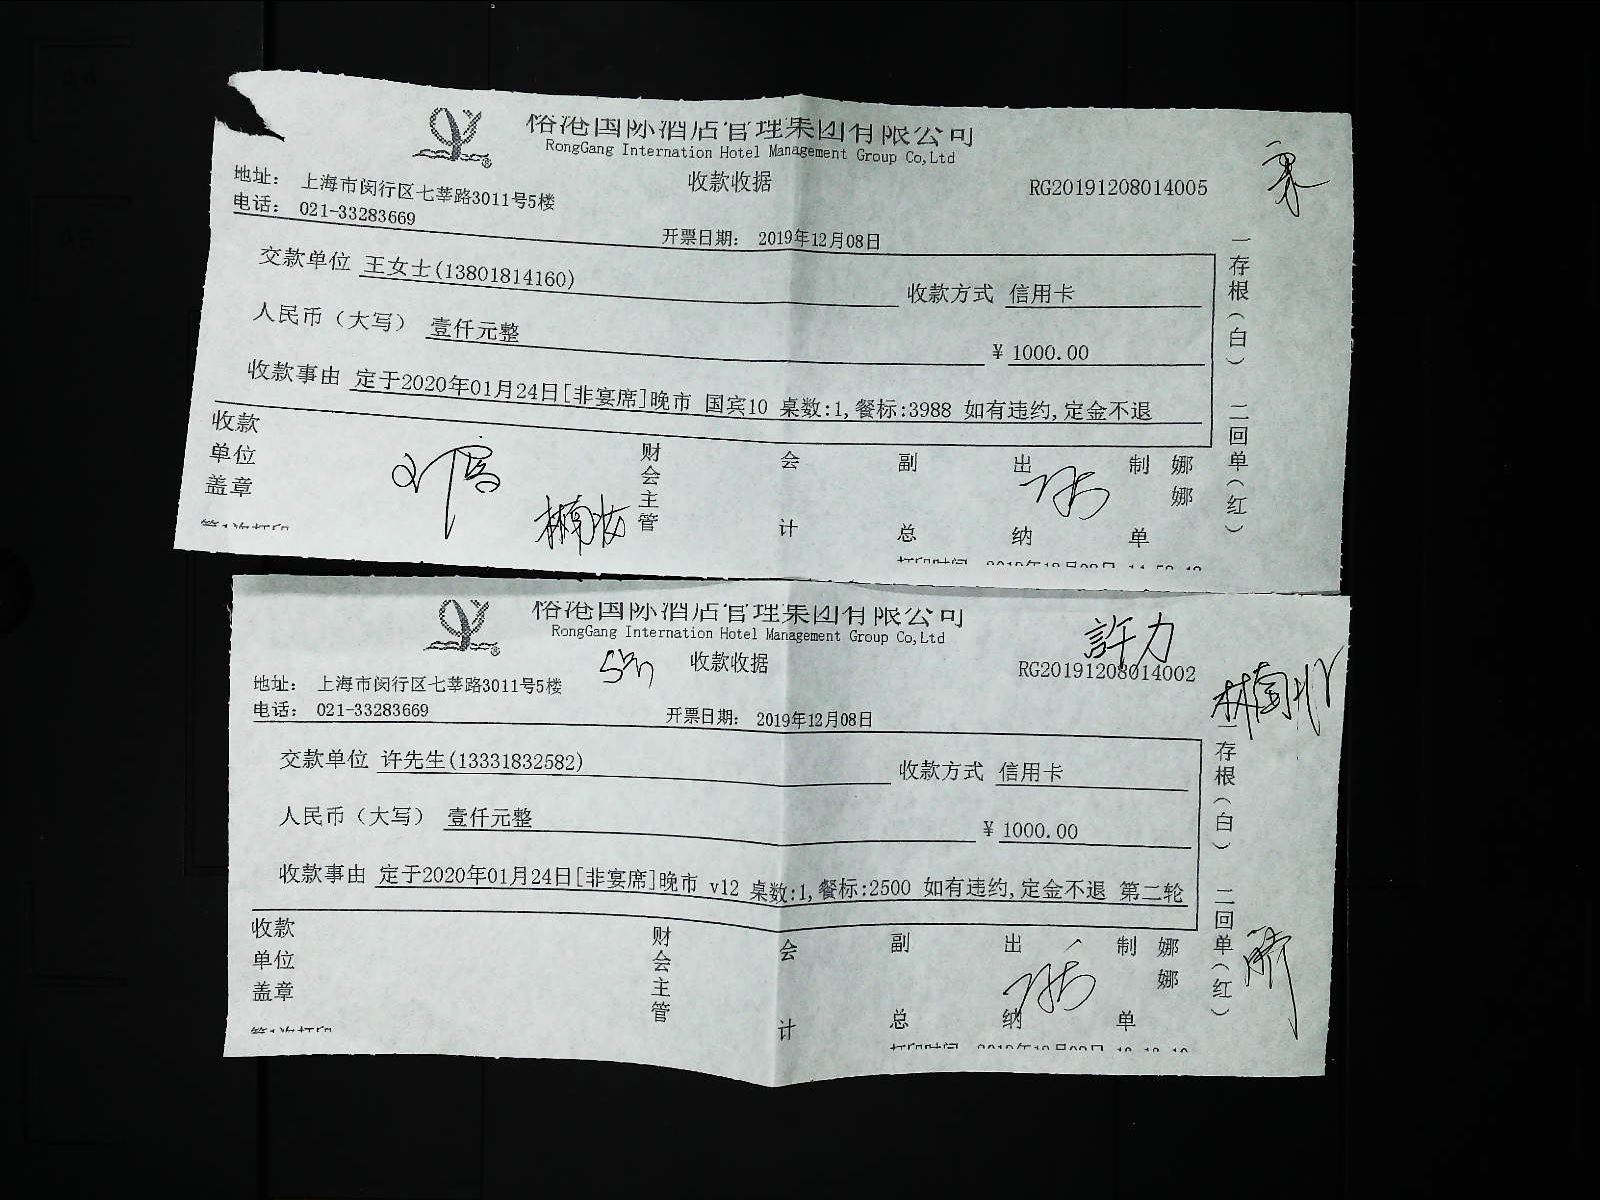 榕港国际酒店管理集团有限公司
RongGang Internation Hotel Management Group Co,Ltd
收款收据
RG20191208014005
地址： 上海市闵行区七莘路3011号5楼
电话： 021-33283669
开票日期： 2019年12月08日
交款单位 王女士(13801814160)
收款方式 信用卡
人民币（大写） 壹仟元整
¥ 1000.00
收款事由 定于2020年01月24日[非宴席]晚市 国宾10 桌数:1,餐标:3988 如有违约,定金不退
收款单位盖章
财会主管
会计
副总
出纳
制单
娜娜
一存根（白） 二回单（红）
第1次打印
打印时间 2019年12月08日
榕港国际酒店管理集团有限公司
RongGang Internation Hotel Management Group Co,Ltd
收款收据
許力
RG20191208014002
地址： 上海市闵行区七莘路3011号5楼
电话： 021-33283669
开票日期： 2019年12月08日
交款单位 许先生(13331832582)
收款方式 信用卡
人民币（大写） 壹仟元整
¥ 1000.00
收款事由 定于2020年01月24日[非宴席]晚市 v12 桌数:1,餐标:2500 如有违约,定金不退 第二轮
收款单位盖章
财会主管
会计
副总
出纳
制单
娜娜
一存根（白） 二回单（红）
第1次打印
打印时间 2019年12月08日